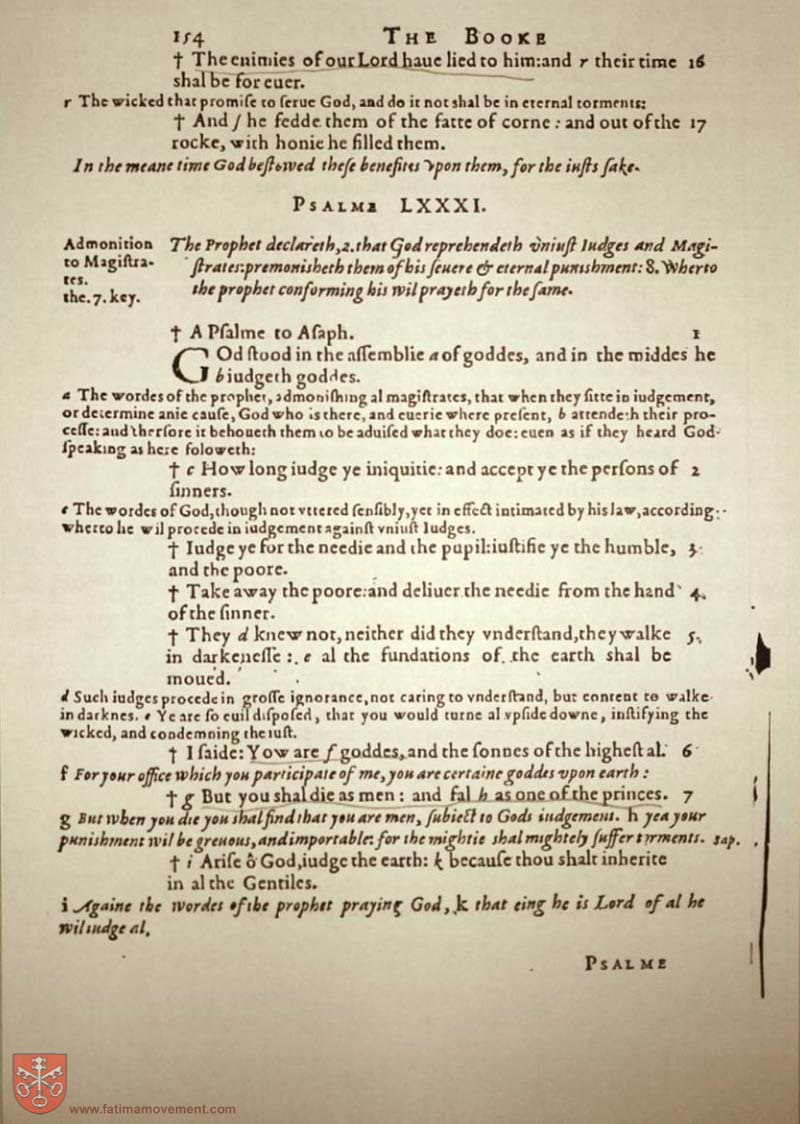 154 THE BOOKE
† The enimies of our Lord haue lied to him: and r their time 16
shal be for euer.
r The wicked that promiſe to ſerue God, and do it not shal be in eternal torments:
† And ſ he fedde them of the fatte of corne: and out of the 17
rocke, with honie he filled them.
In the meane time God beſtowed theſe benefites vpon them, for the iuſts ſake.
PSALME LXXXI.
Admonition
to Magiſtra-
tes.
the. 7. key.
The Prophet declareth, 2. that God reprehendeth vniuſt Iudges and Magi-
ſtrates: premonisheth them of his ſeuere & eternal punishment: 8. Wherto
the prophet conforming his wil prayeth for the ſame.
† A Pſalme to Aſaph. 1
GOd ſtood in the aſſemblie a of goddes, and in the middes he
b iudgeth goddes.
a The wordes of the prophet, admonishing al magiſtrates, that when they ſitte in iudgement,
or determine anie cauſe, God who is there, and euerie where preſent, b attendeth their pro-
ceſſe: and therfore it behoueth them to be aduiſed what they doe: euen as if they heard God
ſpeaking as here foloweth:
† c How long iudge ye iniquitie: and accept ye the perſons of 2
ſinners.
c The wordes of God, though not vttered ſenſibly, yet in effect intimated by his law, according
wherto he wil procede in iudgement againſt vniuſt Iudges.
† Iudge ye for the needie and the pupil: iuſtifie ye the humble, 3
and the poore.
† Take away the poore: and deliuer the needie from the hand 4.
of the ſinner.
† They d knew not, neither did they vnderſtand, they walke 5.
in darkeneſſe: e al the fundations of the earth shal be
moued.
d Such iudges procede in groſſe ignorance, not caring to vnderſtand, but content to walke
in darknes. e Ye are ſo euil diſpoſed, that you would turne al vpſide downe, inſtifying the
wicked, and condemning the iuſt.
† I ſaide: Yow are f goddes, and the ſonnes of the higheſt al. 6
f For your office which you participate of me, you are certaine goddes vpon earth:
† g But you shal die as men: and fal h as one of the princes. 7
g But when you die you shal find that you are men, ſubiect to Gods iudgement. h yea your
punishment wil be greuous, and importable: for the mightie shal mightely ſuffer torments. sap.
† i Ariſe ô God, iudge the earth: k becauſe thou shalt inherite
in al the Gentiles.
i Againe the wordes of the prophet praying God, k that eing he is Lord of al he
wil iudge al.
PSALME
www.fatimamovement.com